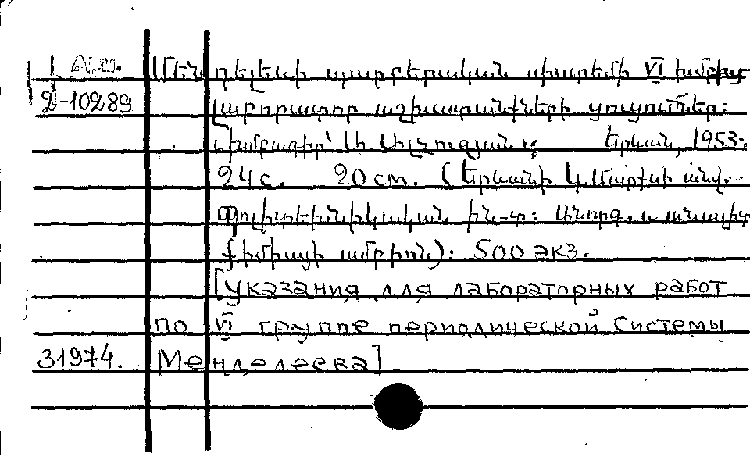 Մենդելեևի պարբերական սիստեմի VI խմբի
Д-10289 լաբորատոր աշխատանքների ցուցումներ:
Երևան, 1953.
24 с. 20 см. (Երևանի Կ. Մարքսի անվ.
Պոլիտեխնիկական ին-տ: Անօրգ. և անալիտ
քիմիայի ամբիոն): 500 экз.
[Указания для лабораторных работ
по VI группе периодической системы
31974. Менделеева]